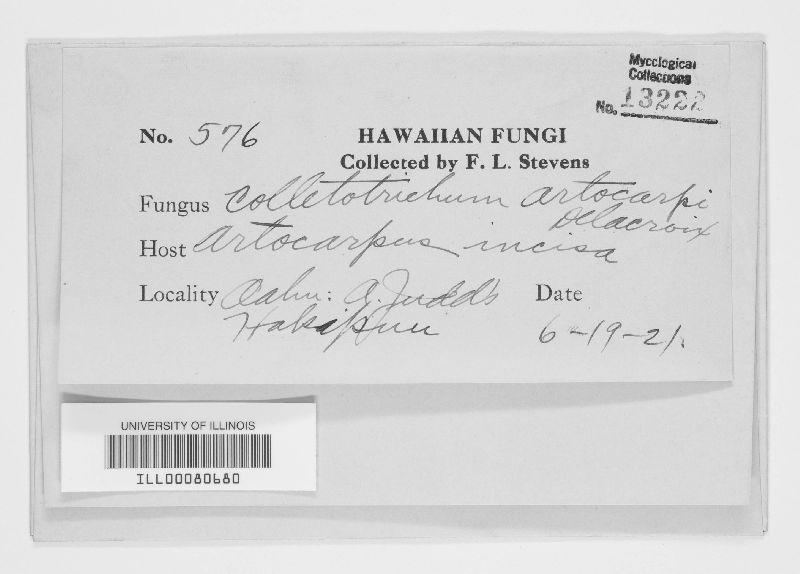 Mycological
Collections
No. 13222
No. 576
HAWAIIAN FUNGI
Collected by F. L. Stevens
Fungus Colletotrichum artocarpi
Delacroix
Host Artocarpus incisa
Locality Oahu: A. Judd's
Hakipuu
Date
6-19-21.
UNIVERSITY OF ILLINOIS
ILL00080680